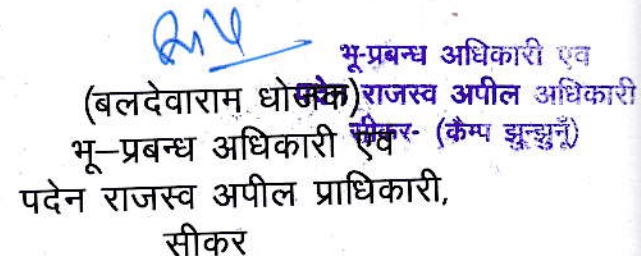 भू-प्रबन्ध अधिकारी एव
पदेन राजस्व अपील अधिकारी
सीकर- (कैम्प झुन्झुनूँ)
(बलदेवाराम धोजक)
भू–प्रबन्ध अधिकारी एंव
पदेन राजस्व अपील प्राधिकारी,
सीकर